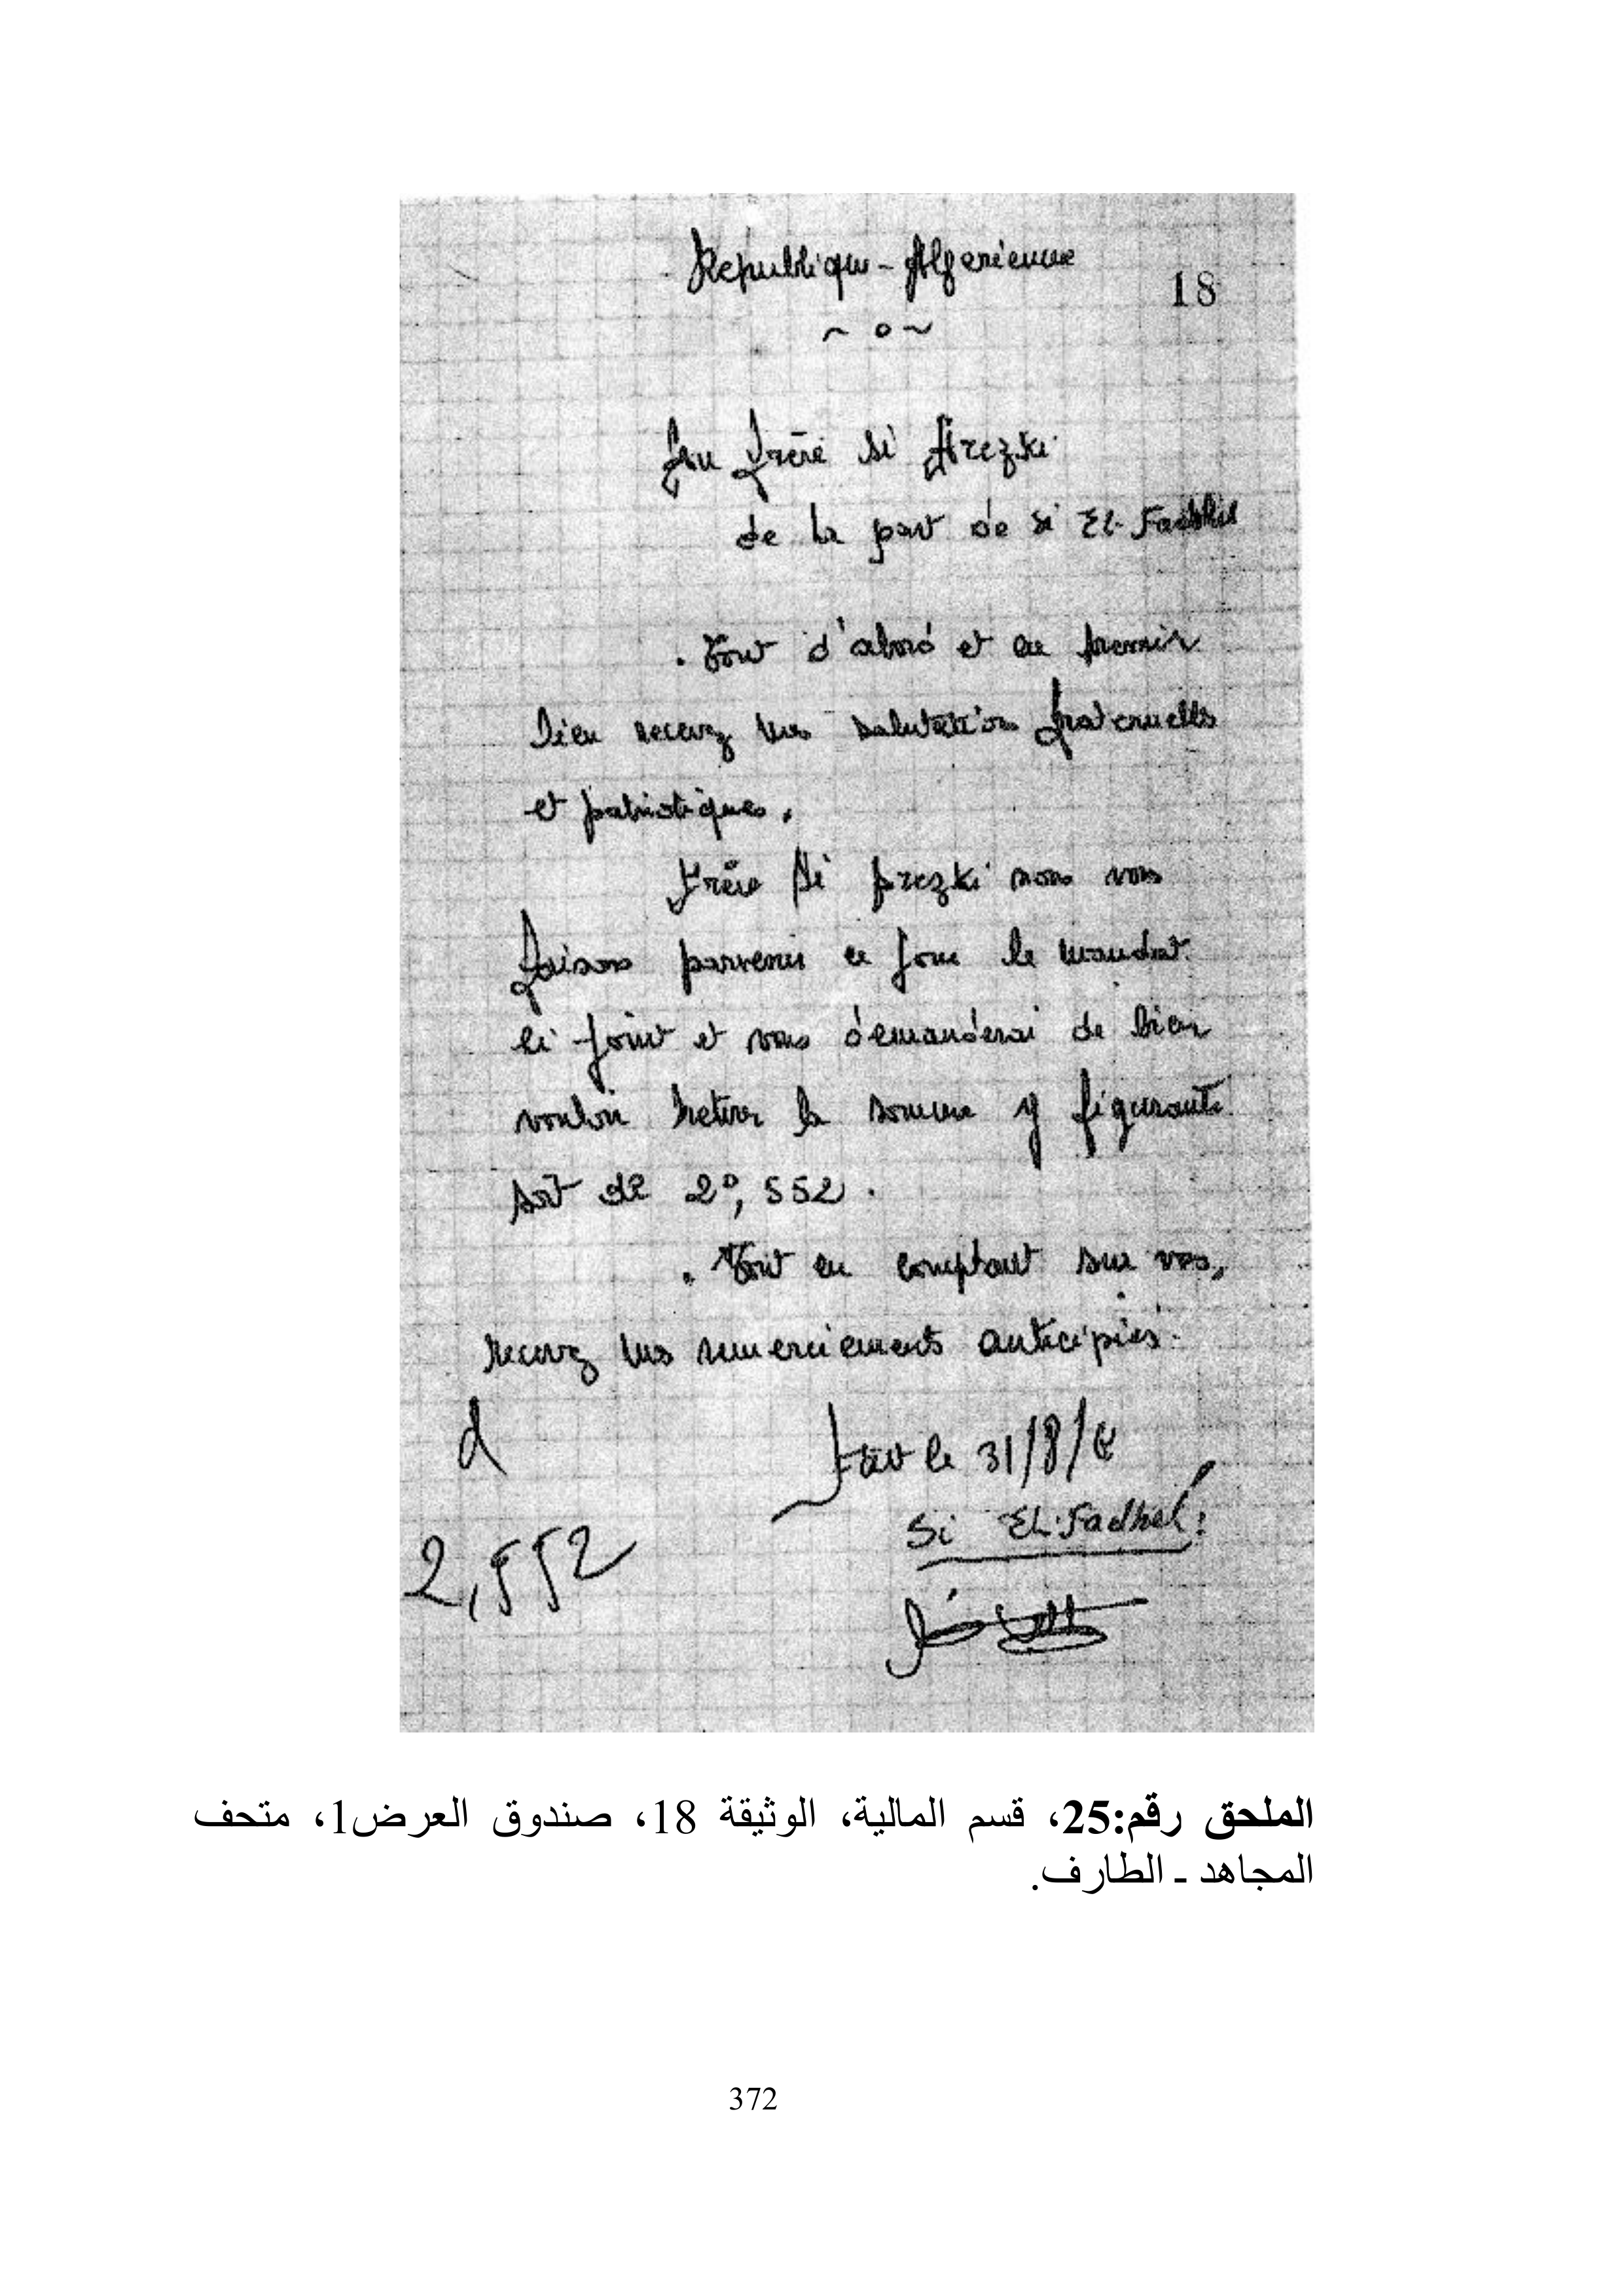 Republique - Algerienne
18
~ o ~
Au frère Si Arezki
de la part de Si El-Fadhel
. Tout d'abord et en premier
lieu recevez nos salutations fraternelles
et patriotiques.
Frère Si Arezki nous vous
faisons parvenir ce jour le mandat
ci-joint et vous demanderai de bien
vouloir retirer la somme y figurante
soit de 2°, 552.
. Tout en comptant sur vous,
recevez nos remerciements anticipés.
d
Fait le 31/8/
Si El-Fadhel
2,552
الملحق رقم:25، قسم المالية، الوثيقة 18، صندوق العرض1، متحف
المجاهد ـ الطارف.
372